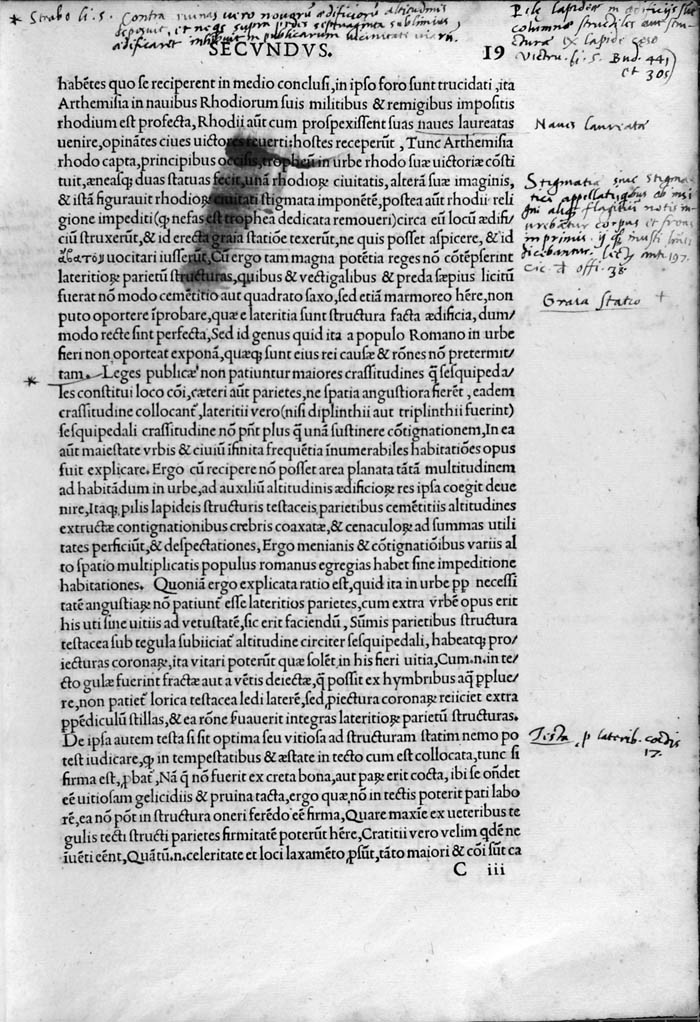 * Strabo li. 5. Contra ruinas vero novorū ædificiorū altitudinis
ædificaret
SECVNDVS. 19
habētes quo se reciperent in medio conclusi, in ipso foro sunt trucidati, ita
Arthemisia in nauibus Rhodiorum suis militibus & remigibus impositis
rhodium est profecta, Rhodii aūt cum prospexissent suas naues laureatas
uenire, opinātes ciues uictores reuerti: hostes receperūt, Tunc Arthemisia
rhodo capta, principibus occisis, tropheū in urbe rhodo suæ uictoriæ cōsti
tuit, æneasq; duas statuas fecit, unā rhodioꝝ ciuitatis, alterā suæ imaginis,
& istā figurauit rhodioꝝ ciuitati stigmata imponētē, postea aūt rhodii reli
gione impediti (q̄ nefas est trophea dedicata remoueri) circa eū locū ædifi/
ciū struxerūt, & id erecta graia statiōe texerūt, ne quis posset aspicere, & id
ἄβατον uocitari iusserūt, Cū ergo tam magna potētia reges nō cōtēpserint
lateritioꝝ parietū structuras, quibus & vectigalibus & preda sæpius licitū
fuerat nō modo cemētitio aut quadrato saxo, sed etiā marmoreo hēre, non
puto oportere īprobare, quæ e lateritia sunt structura facta ædificia, dum/
modo recte sint perfecta, Sed id genus quid ita a populo Romano in urbe
fieri non oporteat exponā, quæq; sunt eius rei causæ & rōnes nō pretermit/
tam. Leges publicæ non patiuntur maiores crassitudines q̄ sesquipeda/
les constitui loco cōi, cæteri aut parietes, ne spatia angustiora fierēt, eadem
crassitudine collocant̄, lateritii vero (nisi diplinthii aut triplinthii fuerint)
sesquipedali crassitudine nō pn̄t plus q̄ unā sustinere cōtignationem, In ea
aūt maiestate vrbis & ciuiū ifinita frequētia inumerabiles habitatiōes opus
fuit explicare. Ergo cū recipere nō posset area planata tātā multitudinem
ad habitādum in urbe, ad auxiliū altitudinis ædificioꝝ res ipsa coegit deue
nire, Itaq; pilis lapideis structuris testaceis parietibus cemētitiis altitudines
extructæ contignationibus crebris coaxatæ, & cenaculoꝝ ad summas utili
tates perficiūt, & despectationes, Ergo menianis & cōtignatiōibus variis al
to spatio multiplicatis populus romanus egregias habet sine impeditione
habitationes. Quoniā ergo explicata ratio est, quid ita in urbe ꝓp necessi
tatē angustiaꝝ nō patiunt̄ esse lateritios parietes, cum extra vrbē opus erit
his uti sine uitiis ad vetustatē, sic erit faciendū, Sūmis parietibus structura
testacea sub tegula subiiciat̄ altitudine circiter sesquipedali, habeatq; pro/
iecturas coronaꝝ, ita vitari poterūt quæ solēt in his fieri uitia, Cum.n.in te/
cto gulæ fuerint fractæ aut a vētis deiectæ, q̄ possit ex hymbribus aq̄ pplue/
re, non patiet̄ lorica testacea ledi laterē, sed ꝓiectura coronaꝝ reiiciet extra
ppēdiculū stillas, & ea rōne ẜuauerit integras lateritioꝝ parietū structuras.
De ipsa autem testa si sit optima seu vitiosa ad structuram statim nemo po
test iudicare, q̄ in tempestatibus & æstate in tecto cum est collocata, tunc si
firma est, ꝓbat̄, Nā q̄ nō fuerit ex creta bona, aut paꝝ erit cocta, ibi se on̄det
eē uitiosam gelicidiis & pruina tacta, ergo quæ nō in tectis poterit pati labo
rē, ea nō pōt in structura oneri ferēdo eē firma, Quare maxīe ex ueteribus te
gulis tecti structi parietes firmitatē poterūt hēre, Cratitii vero velim q̄dē ne
īuēti eēnt, Quātū.n.celeritate et loci laxamēto ꝓsūt, tāto maiori & cōi sūt ca
C iii
Pile lapideæ in ædificijs sunt
columnæ structiles aut stru-
cturæ ex lapide cæso
Victru. li. 5. Bud. 441
et 305
Naues laureatæ
Stigmatia siue stigma-
tici
Cic. offi. 38.
Graia statio +
*
Testa, p laterib. coctis
17.